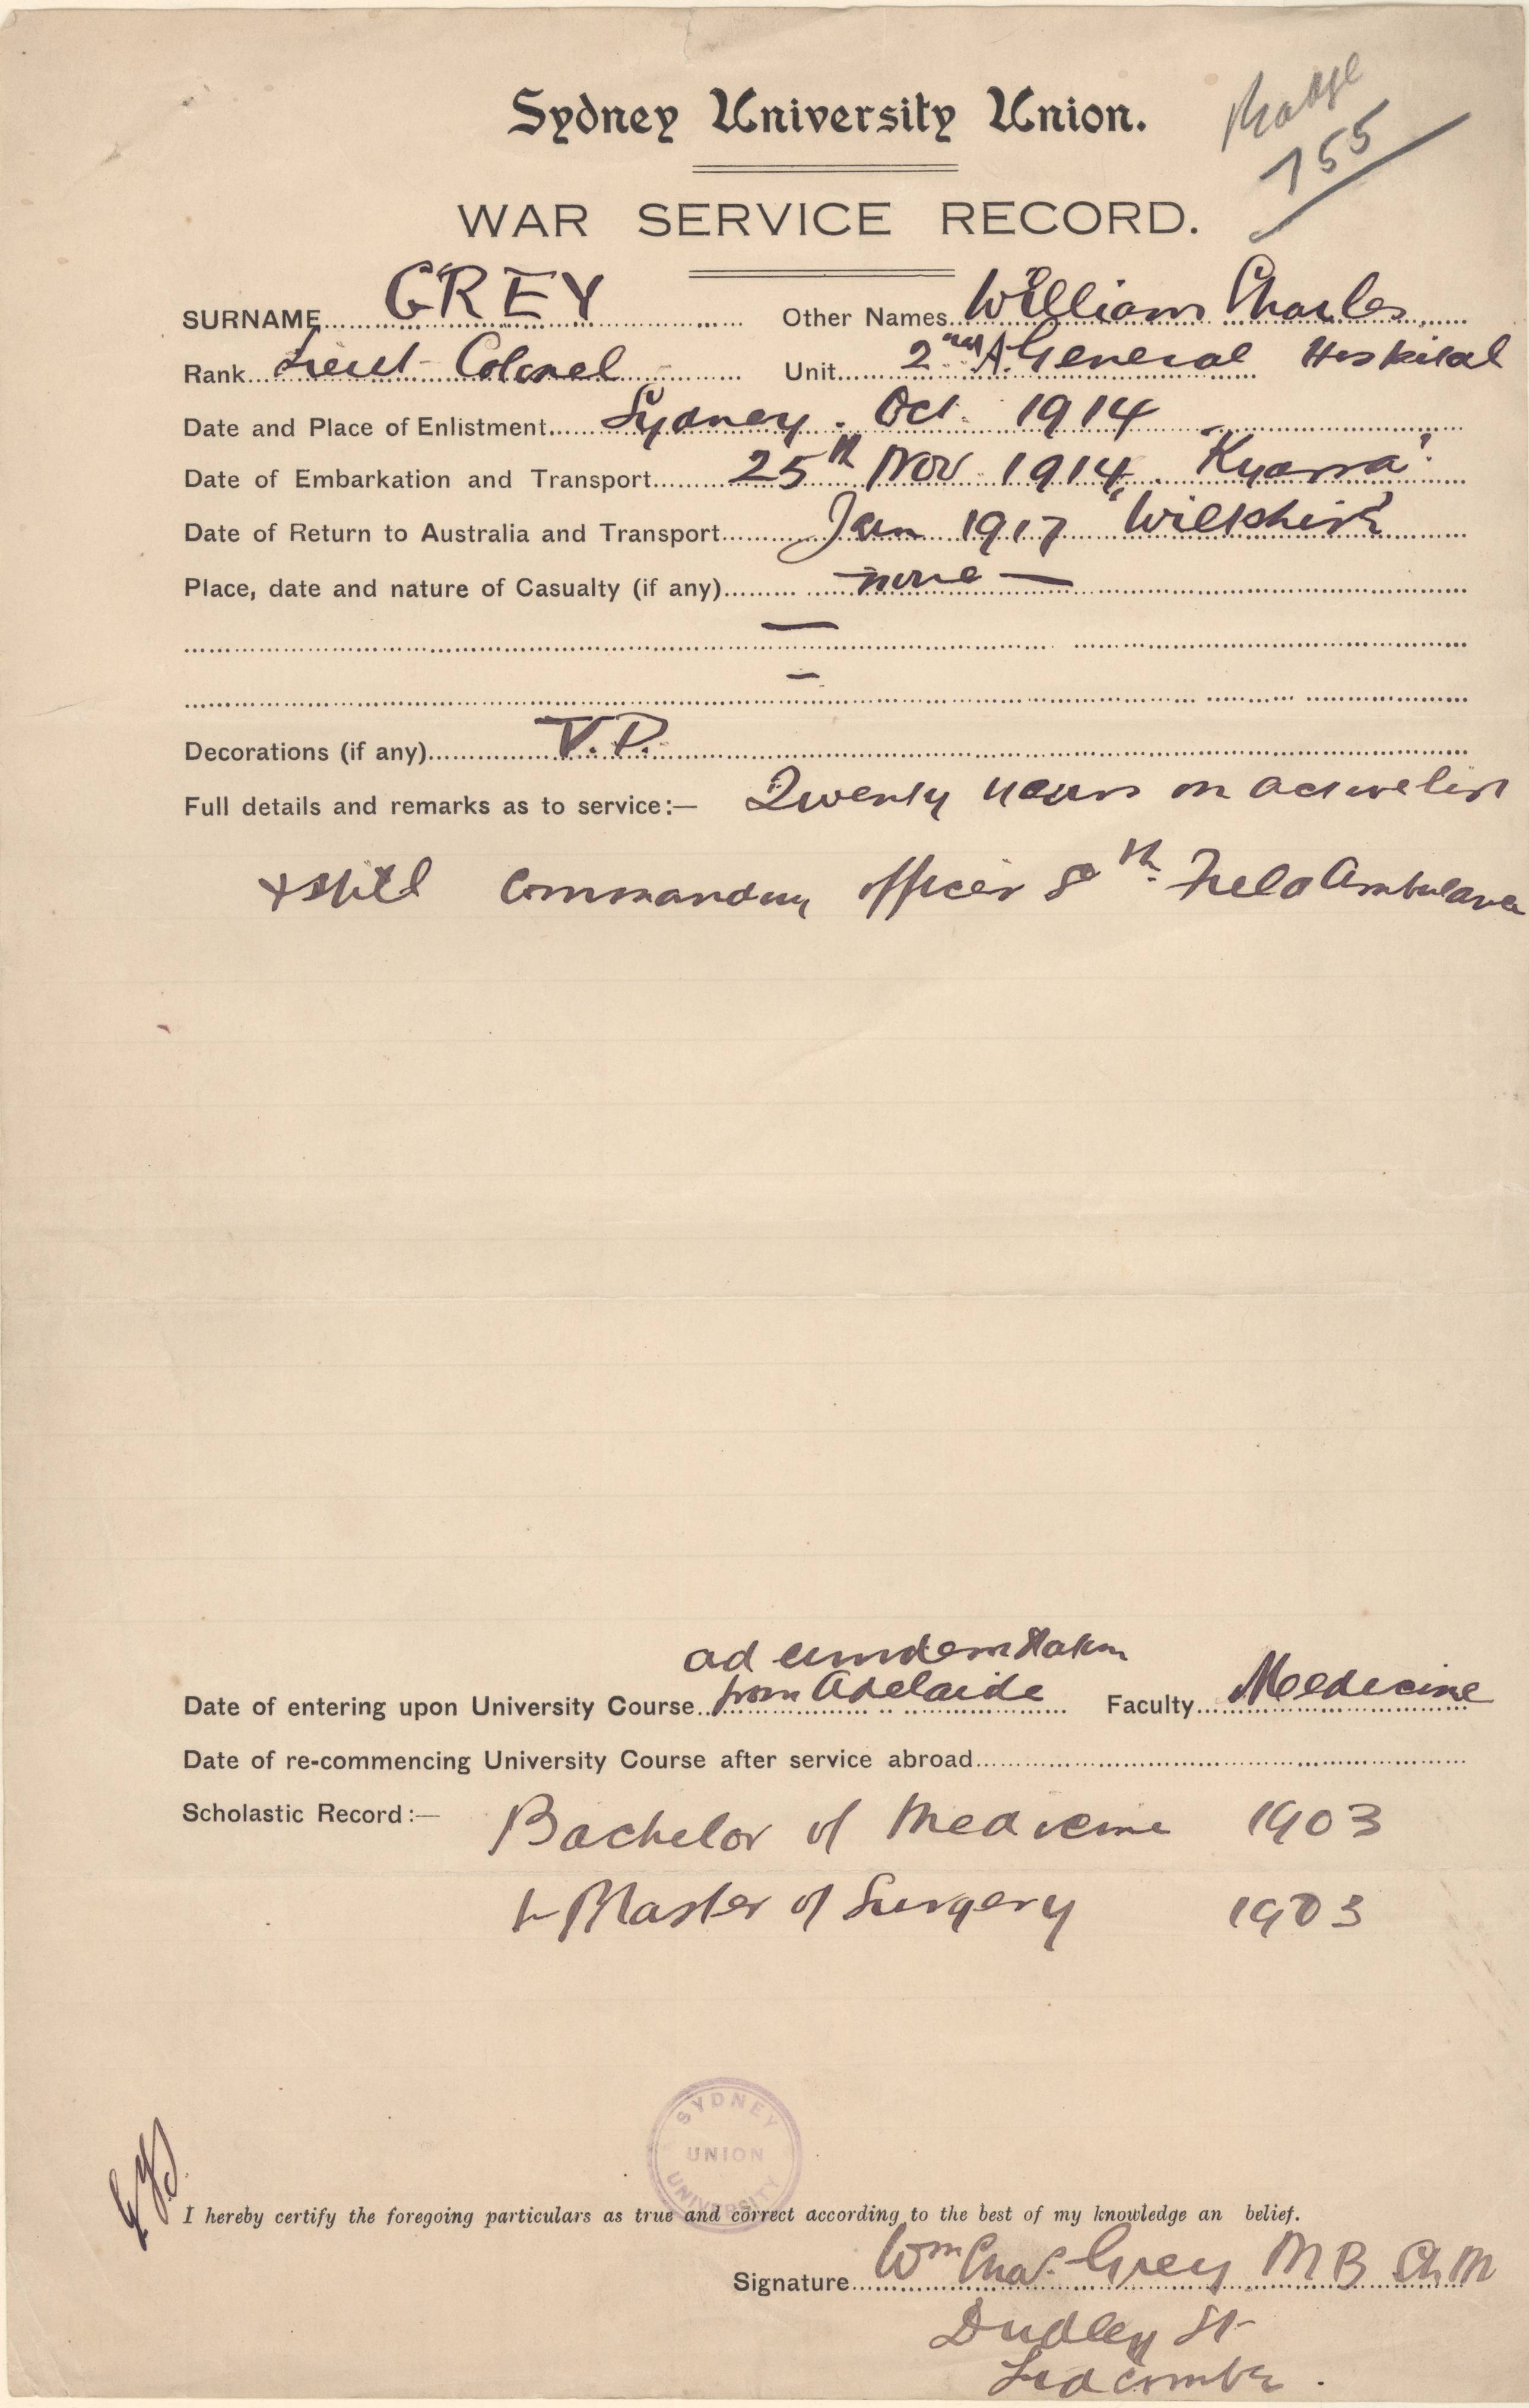 Sydney University Union.
Badge
755
WAR SERVICE RECORD.
SURNAME GREY Other Names William Charles
Rank Lieut Colonel Unit 2nd A. General Hospital
Date and Place of Enlistment Sydney. Oct. 1914
Date of Embarkation and Transport 25th Nov 1914. "Kyarra".
Date of Return to Australia and Transport Jan 1917 "Wiltshire"
Place, date and nature of Casualty (if any) — none —
—
—
Decorations (if any) V.D.
Full details and remarks as to service:— Twenty years on active list
& still Commanding officer th. Field Ambulance
ad eundem
from Adelaide
Date of entering upon University Course Faculty Medicine
Date of re-commencing University Course after service abroad
Scholastic Record:— Bachelor of Medicine 1903
& Master of Surgery 1903
SYDNEY UNION UNIVERSITY
I hereby certify the foregoing particulars as true and correct according to the best of my knowledge an belief.
Signature Wm Chas. Grey MB Ch M
Dudley St
Lidcombe.